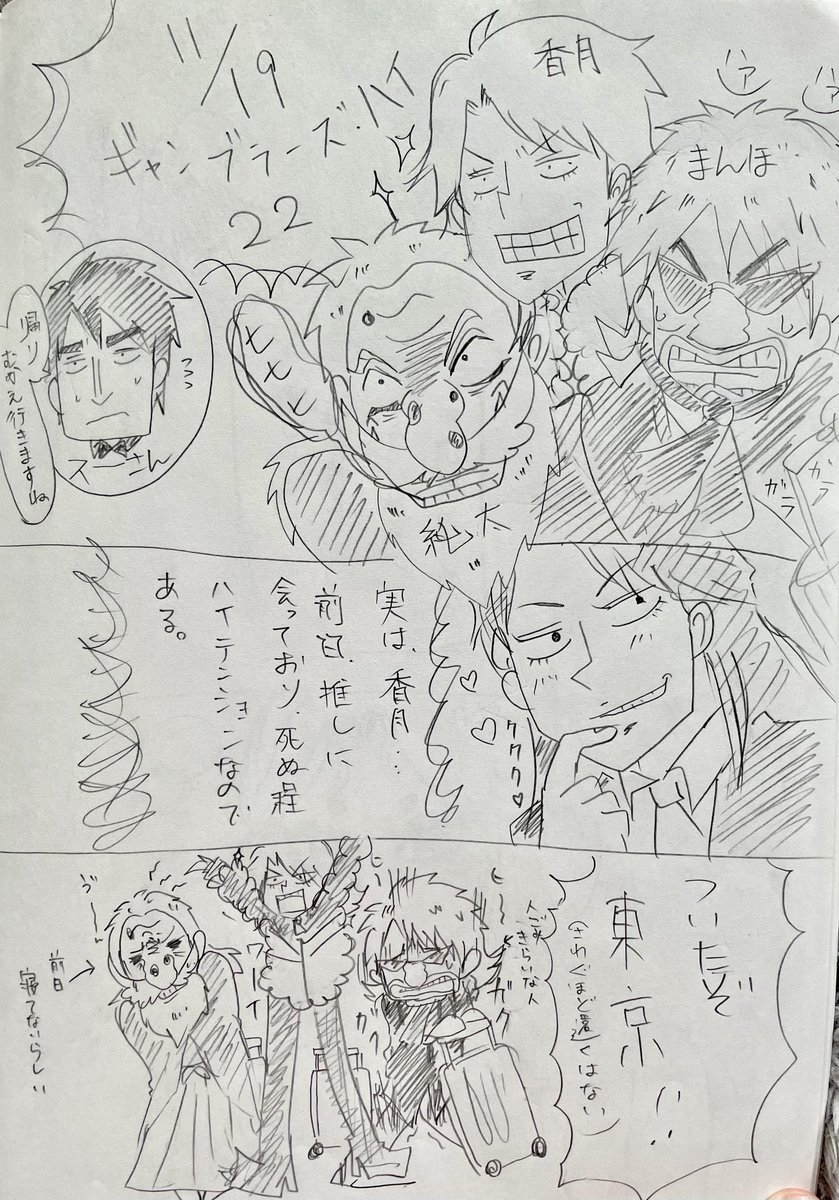 11/19
ギャンブラーズ・ハイ
22
香月
まんぼ
ハァ
ハァ
ヒヒヒ
純太
ガラ
ガラ
スーさん
帰り
むかえ行きますね
実は、香月…
前日、推しに
会っており、死ぬ程
ハイテンションなので
ある。
ククク♡
ついたぞ
東京!!
(さわぐほど遠くはない)
人ごみ
きらいな人
ガク
ガク
ワーイ
前日
寝てないらしい